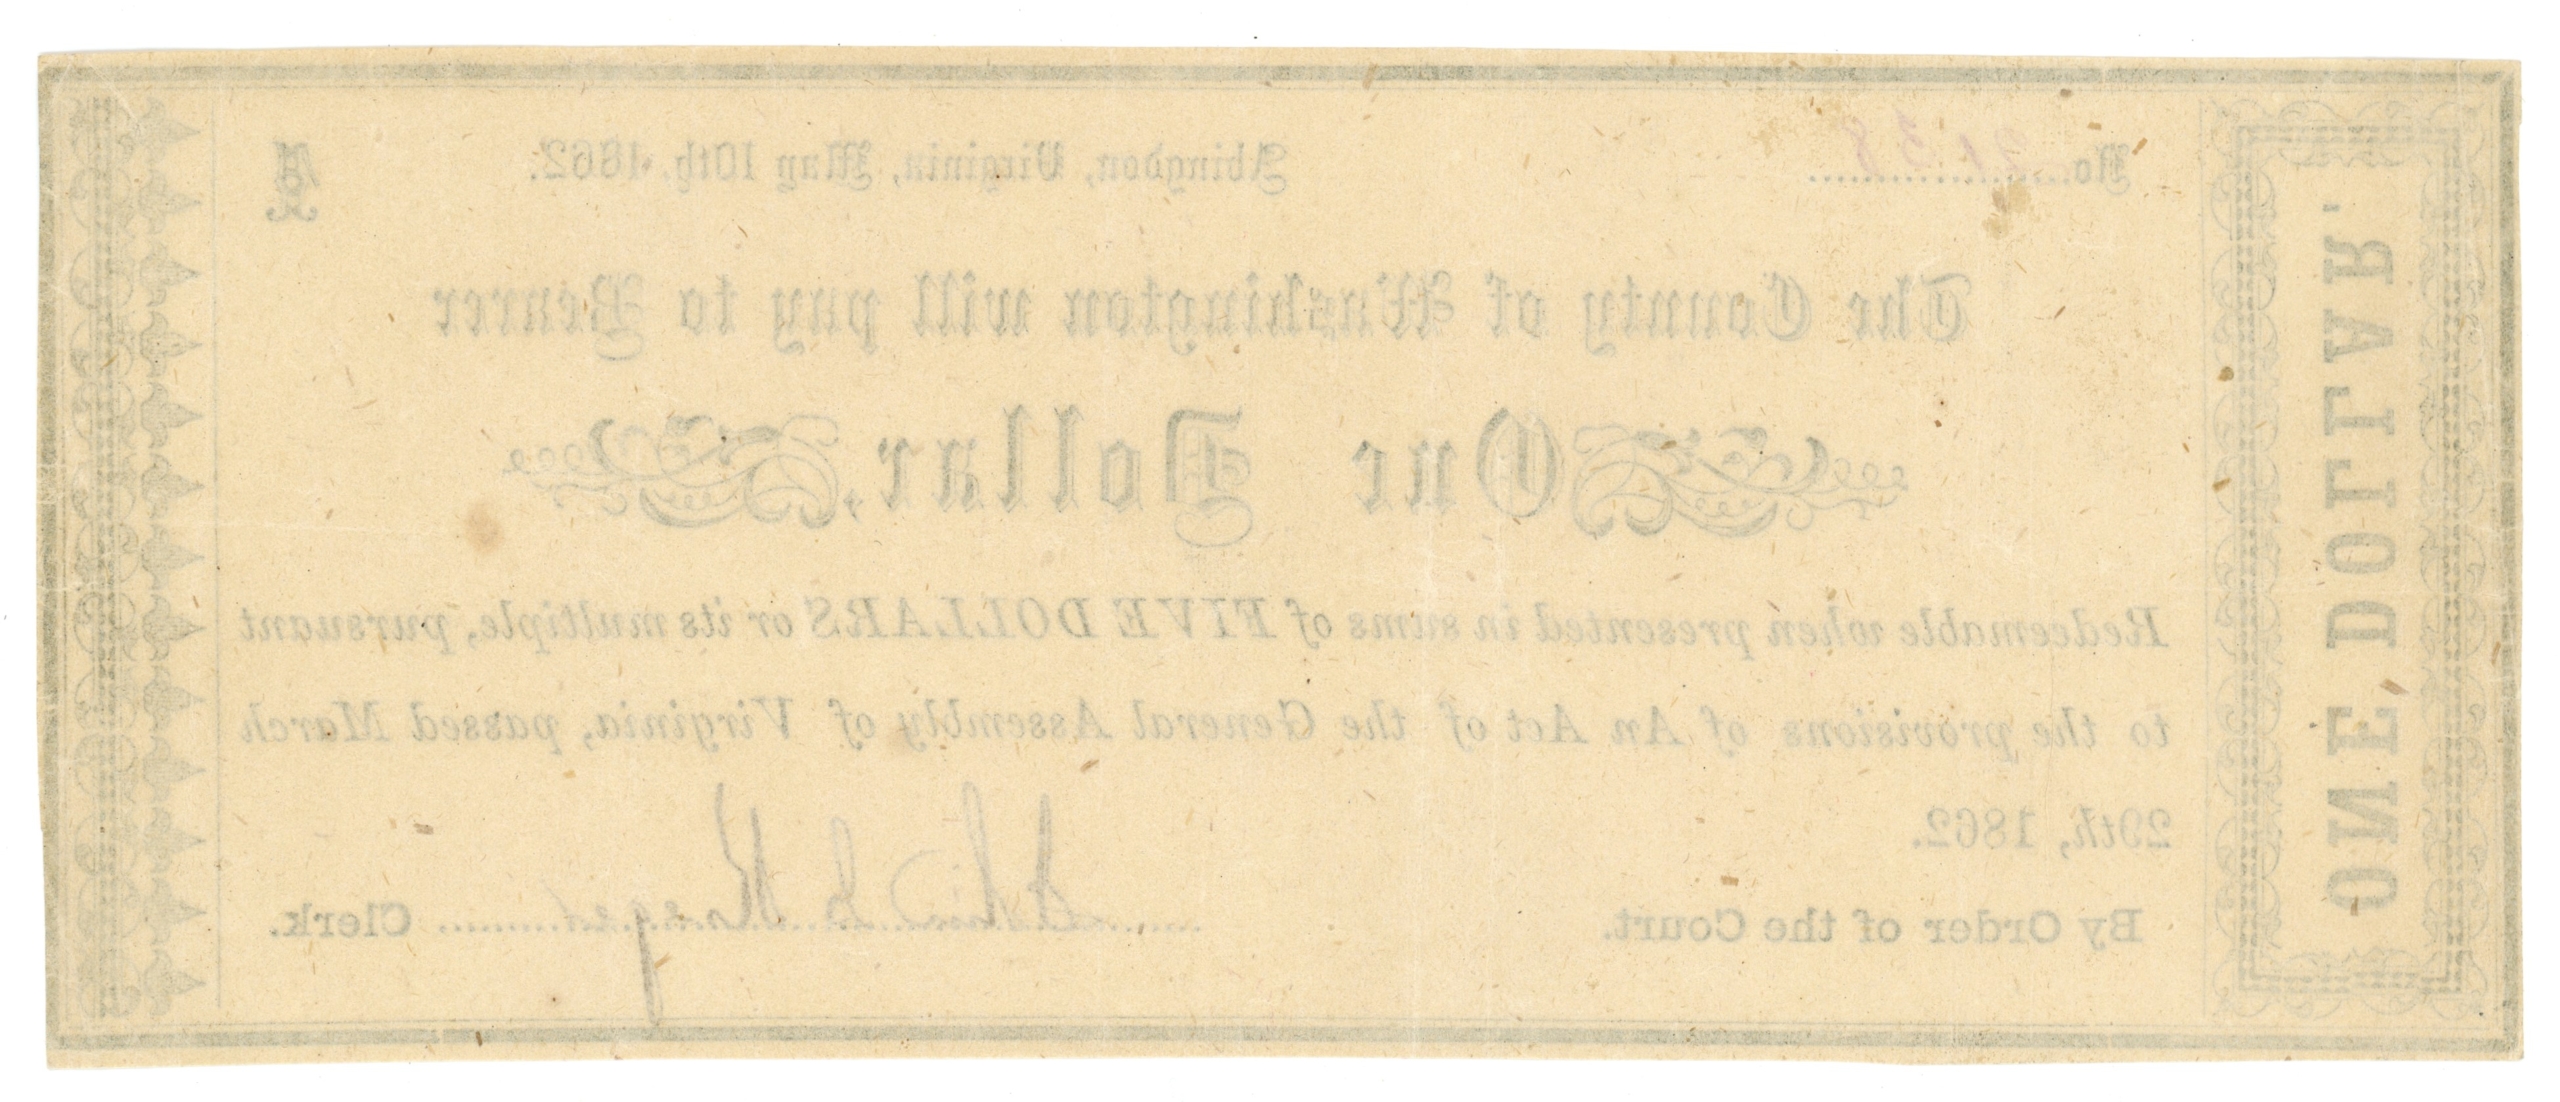 No. 2138
Abingdon, Virginia, May 10th, 1862.
1
The County of Washington will pay to Bearer
One Dollar,
Redeemable when presented in sums of FIVE DOLLARS or its multiple, pursuant
to the provisions of An Act of the General Assembly of Virginia, passed March
29th, 1862.
By Order of the Court.
Clerk.
ONE DOLLAR.